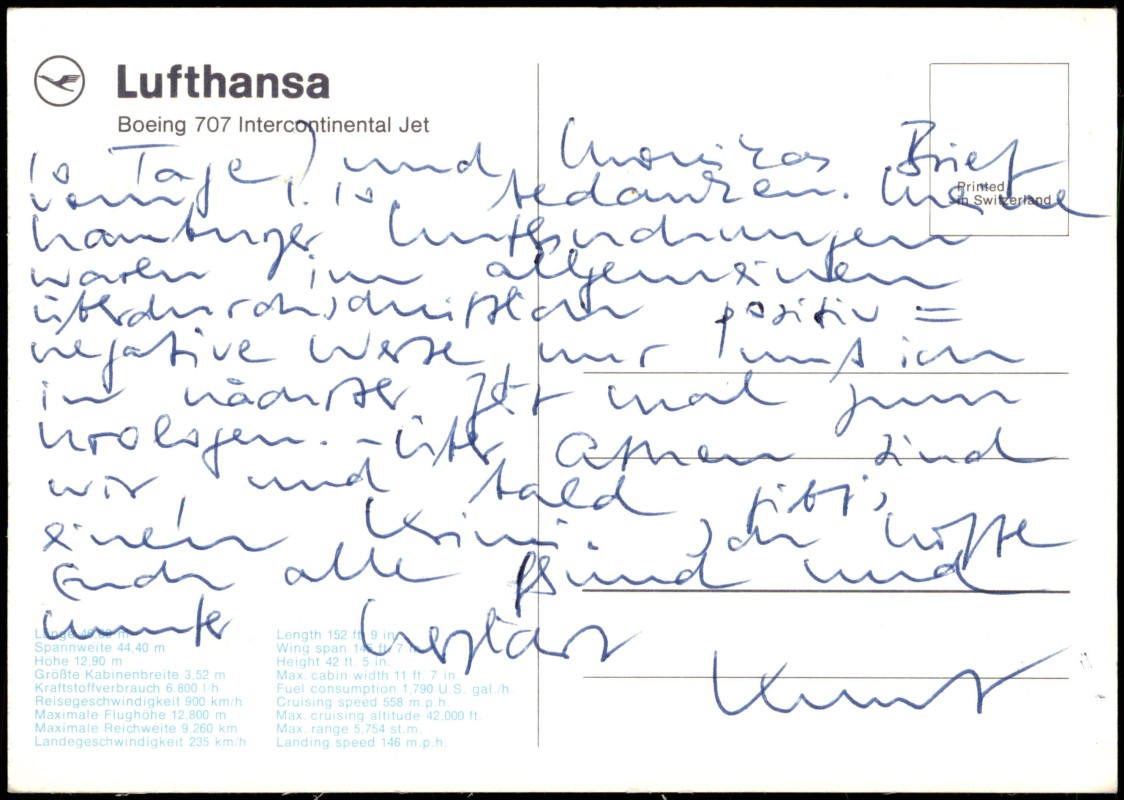 Lufthansa
Boeing 707 Intercontinental Jet
Printed
in Switzerland
10 Tage) und Monikas Brief
vom 1.10 bedanken. Meine
Hamburger Untersuchungen
waren im allgemeinen
überdurchschnittlich positiv =
negative Werte, nur muß ich
in nächster Zeit mal zum
Urologen. - Über Athen sind
wir, und bald gibt's
einen Krimi. Ich hoffe
Euch alle gesund und
munter Herzlichst
Kurt
Länge m
Spannweite 44,40 m
Höhe 12,90 m
Größte Kabinenbreite 3,52 m
Kraftstoffverbrauch 6.800 l/h
Reisegeschwindigkeit 900 km/h
Maximale Flughöhe 12.800 m
Maximale Reichweite 9.260 km
Landegeschwindigkeit 235 km/h
Length 152 ft. 9 in.
Wing span 145 ft. 7 in.
Height 42 ft. 5 in.
Max. cabin width 11 ft. 7 in.
Fuel consumption 1,790 U.S. gal./h.
Cruising speed 558 m.p.h.
Max. cruising altitude 42.000 ft.
Max. range 5.754 st.m.
Landing speed 146 m.p.h.